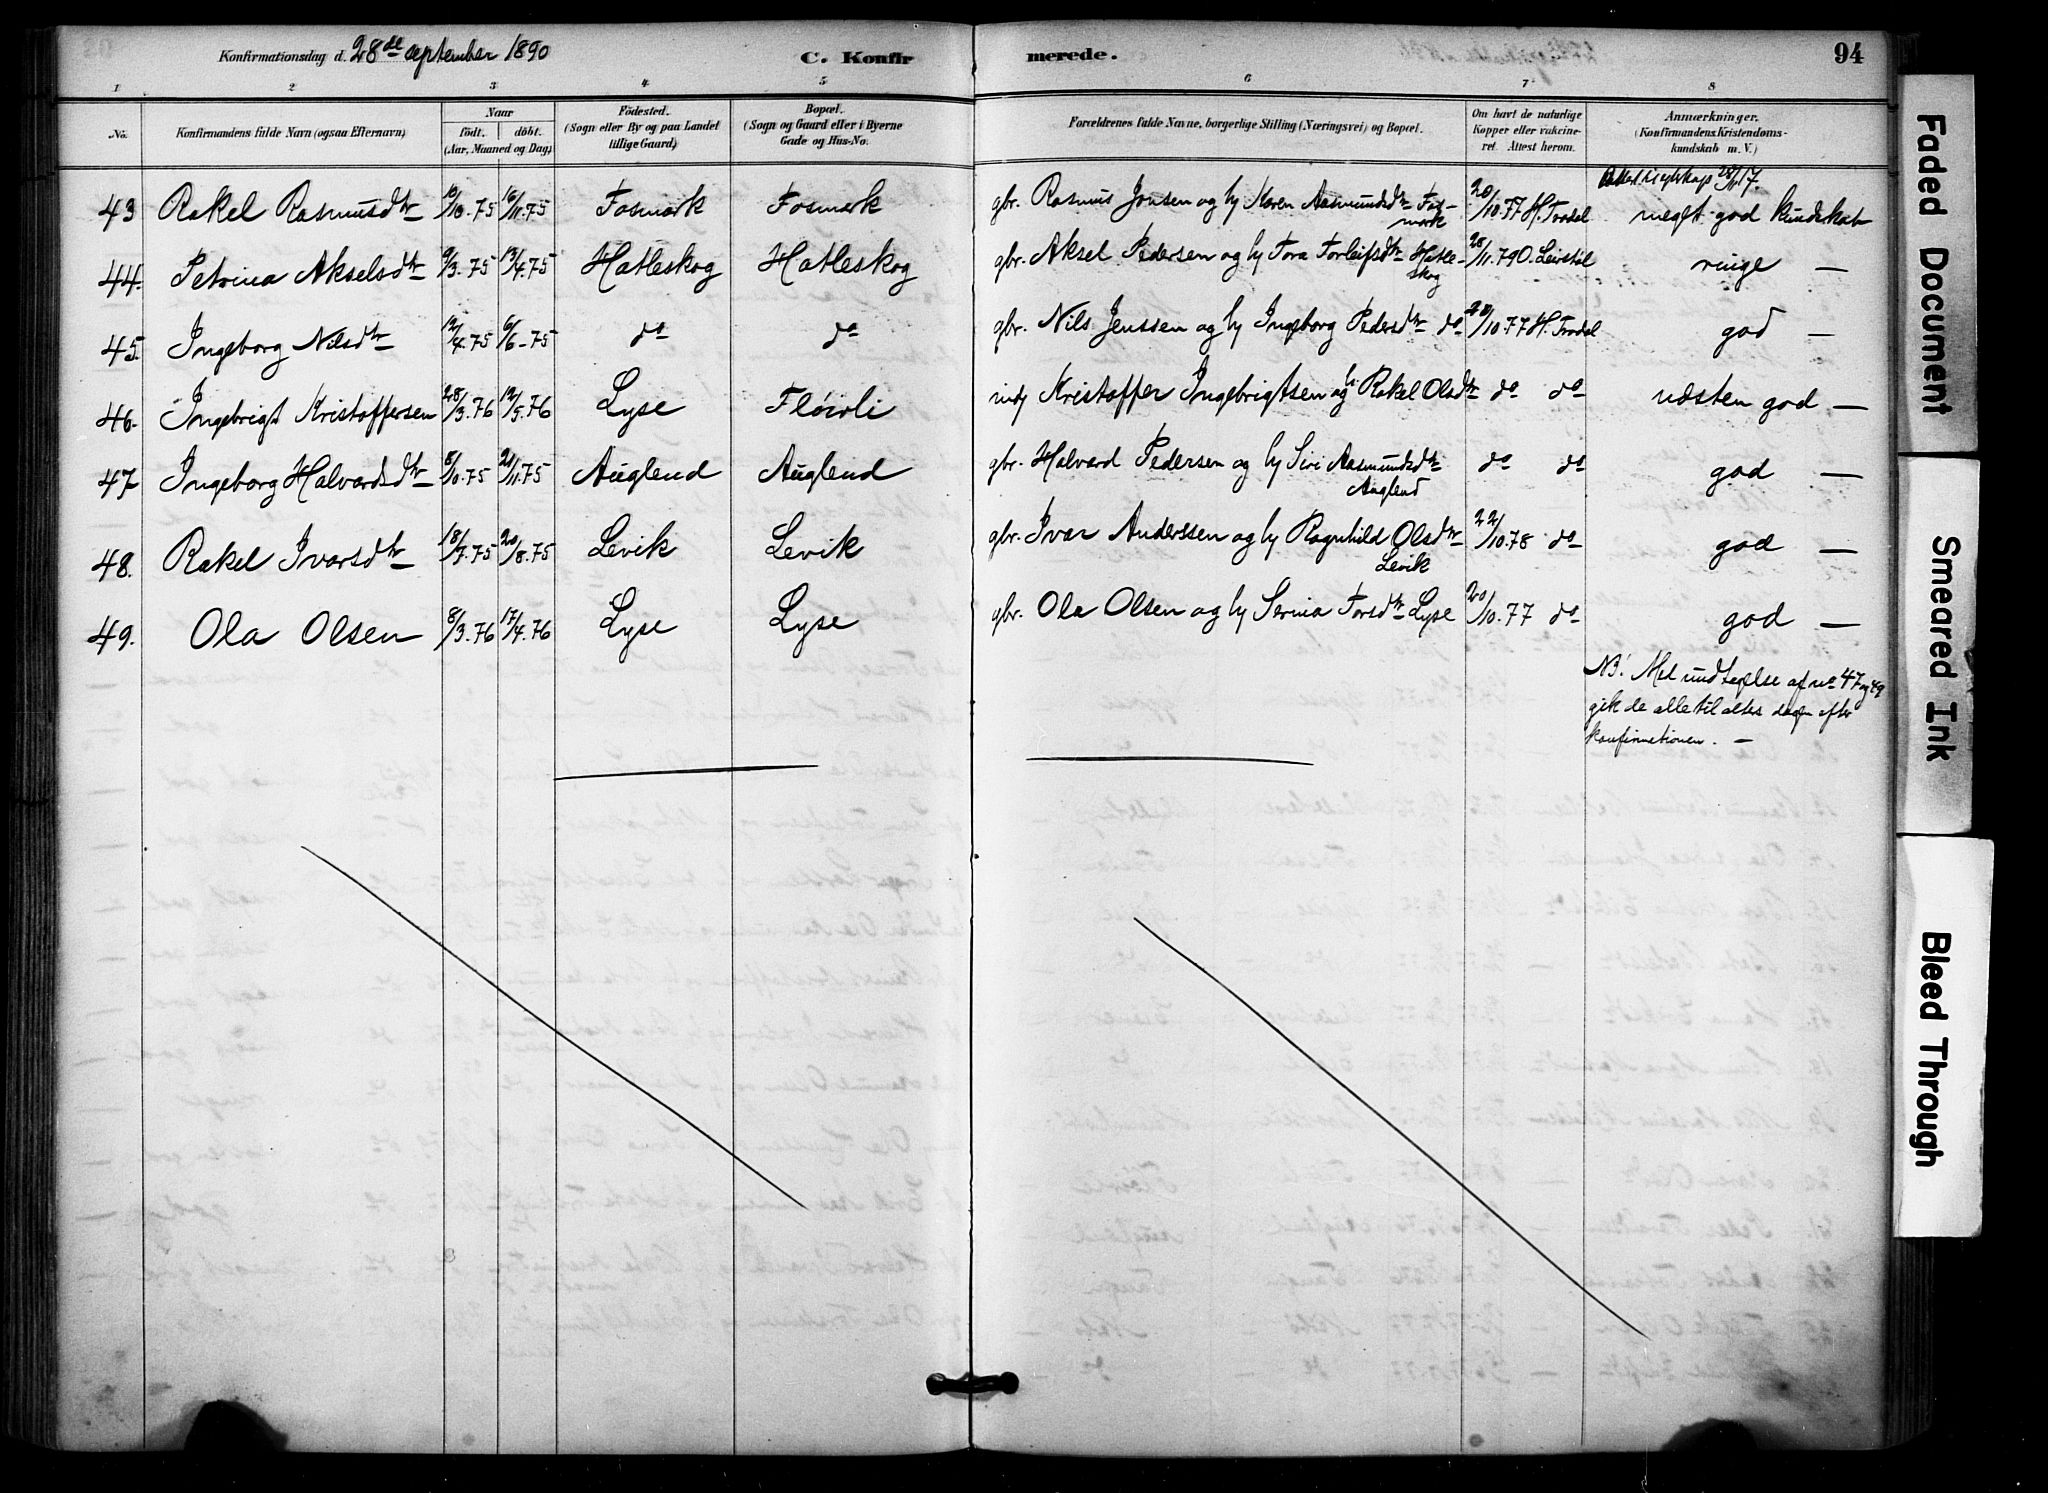 Konfirmationsdag d. 28de september 1890
C. Konfirmerede.
94
1 2 3 4 5 6 7 8
No.
Konfirmandens fulde Navn (ogsaa Efternavn)
Naar
födt. döbt.
(Aar, Maaned og Dag)
Födested.
(Sogn eller By og paa Landet
tillige Gaard)
Bopæl.
(Sogn og Gaard eller i Byerne
Gade og Hus-No.
Forældrenes fulde Navne, borgerlige Stilling (Næringsvei) og Bopæl.
Om havt de naturlige
Kopper eller vakcine-
ret. Attest herom.
Anmærkninger.
(Konfirmandens Kristendoms-
kundskab m. V.)
28/11 17.
43 Rakel Rasmusdtr 19/10.75 16/11.75 Fosmark Fosmark gbr. Rasmus Jonsen og h Karen Aasmundsdtr Fos-
mark 20/10.77 H. Tradal meget god kundskab
44. Petrina Akselsdtr 9/3.75 13/4.75 Hatleskog Hatleskog gbr. Aksel Pedersen og h Tora Torleifsdtr Hatle-
skog 28/11.79 O. Leirstöl ringe —
45. Ingeborg Nilsdtr 12/4.75 6/6-75 do do gbr. Nils Jenssen og h Ingeborg Pedersdtr do 20/10.77 H. Tradal god —
46. Ingebrigt Kristoffersen 28/3.76 12/5.76 Lyse Flöirli indr Kristoffer Ingebrigtsen og h Rakel Olsdtr do do næsten god —
47 Ingeborg Halvardsdtr 8/10.75 21/11.75 Auglend Auglend gbr. Halvard Pedersen og h Siri Aasmundsdtr
Auglend do do god —
48. Rakel Ivarsdtr 18/7.75 20/8.75 Levik Levik gbr. Ivar Anderssen og h Ragnhild Olsdtr
Levik 22/10.78 do god —
49. Ola Olsen 8/3.76 17/4.76 Lyse Lyse gbr. Ola Olsen og h Serina Torsdtr Lyse 20/10.77 do god —
NB! Med undtagelse af no 47 og 49
gik de alle til alters dagen efter
konfirmationen. —
Faded Document
Smeared Ink
Bleed Through